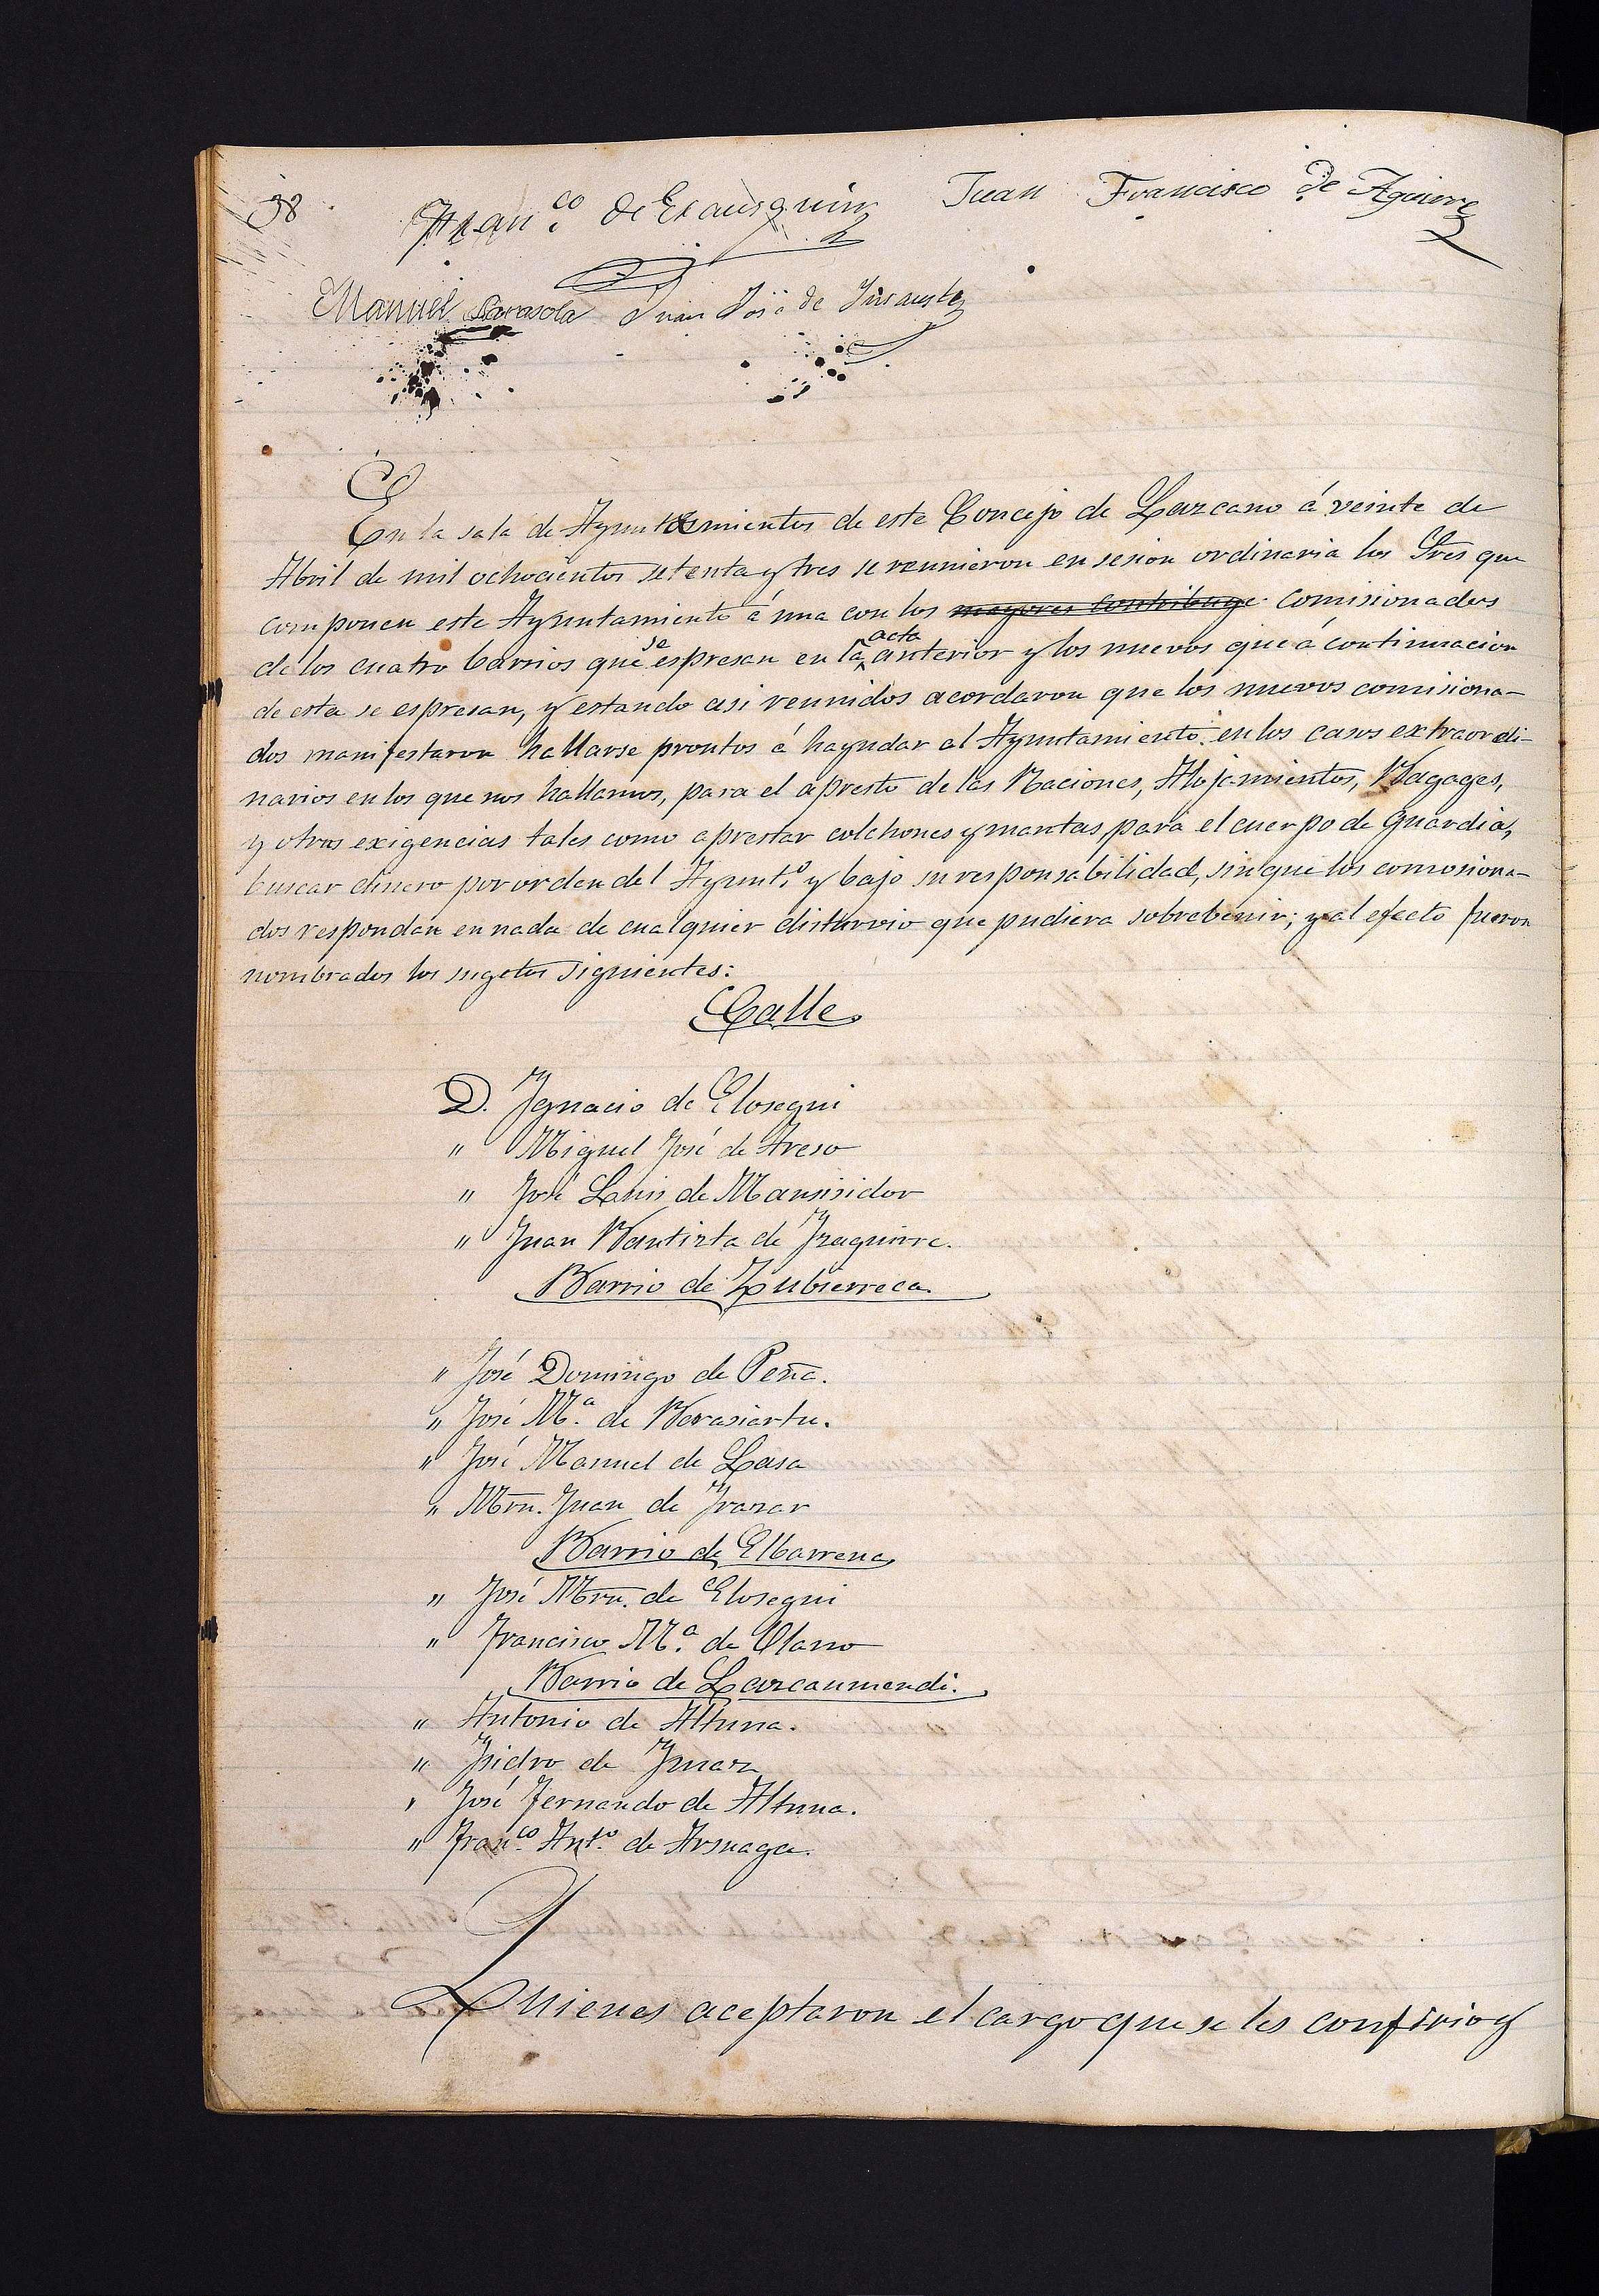 38
Fran.co de Exausquin
Juan Francisco de Aguirre
Manuel Sarasola Juan José de Insausti
En la sala de Ayuntamientos de este Concejo de Lazcano á veinte de
Abril de mil ochocientos setenta y tres se reunieron en sesion ordinaria los Sres que
componen este Ayuntamiento á una con los mayores contribuye comisionados
de los cuatro barrios que se espresan en la acta anterior y los nuevos que á continuacion
de esta se espresan, y estando asi reunidos acordaron que los nuevos comisiona-
dos manifestaron hallarse prontos á hayudar al Ayuntamiento en los casos extraordi-
narios en los que nos hallamos, para el apresto de las Raciones, Alojamientos, Bagages,
y otras exigencias tales como aprestar colchones y mantas para el cuerpo de guardia,
buscar dinero por orden del Ayunt.o y bajo su responsabilidad, sin que los comosiona-
dos respondan en nada de cualquier disturvio que pudiera sobrebenir; y al efecto fueron
nombrados los sugetos siguientes:
Calle
D. Ygnacio de Elosegui
" Miguel José de Areso
" José Luis de Mansisidor
" Juan Bautizta de Yzaguirre.
Barrio de Zubierreca.
" José Domingo de Peña.
" José M.a de Berasiartu.
" José Manuel de Lasa
" Mrn. Juan de Yrazar
Barrio de Elbarrena
" José Mrn. de Elosegui
" Francisco M.a de Olano
Barrio de Lazcaumendi.
" Antonio de Altuna.
" Ysidro de Ymaz
" José Fernando de Altuna.
" Fran.co Ant.o de Arsuaga.
Quienes aceptaron el cargo que se les confirio y